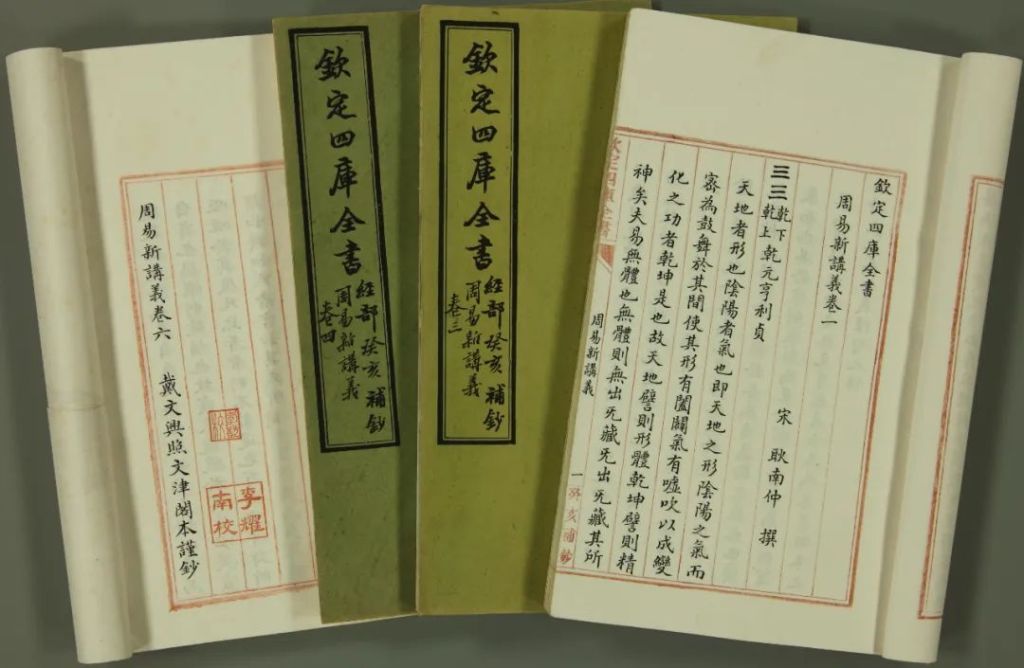 欽定四庫全書
周易新講義卷一
宋 耿南仲 撰
☰☰乾下乾上乾元亨利貞
天地者形也陰陽者氣也即天地之形陰陽之氣而
密為鼓舞於其間使其形有闔闢氣有噓吹以成變
化之功者乾坤是也故天地譬則形體乾坤譬則精
神矣夫易無體也無體則無出旡藏旡出旡藏其所
欽定四庫全書
周易新講義
一
癸亥補鈔
欽定四庫全書
經部 癸亥補鈔
周易新講義
卷三
欽定四庫全書
經部 癸亥補鈔
周易新講義
卷四
周易新講義卷六 戴文興照文津閣本謹鈔
李耀南校